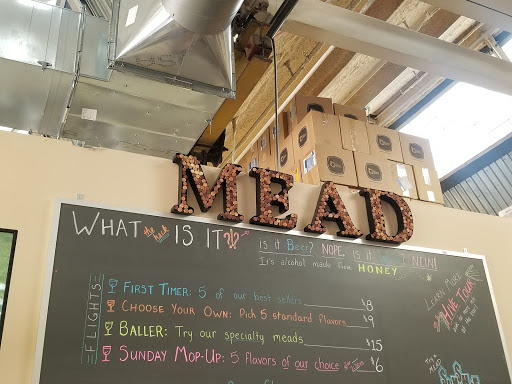 MEAD
WHAT the heck IS IT?
is it Beer? NOPE. IS IT ? NEIN!
It's alcohol made from HONEY
LEARN MORE
HIVE TOUR
FLIGHTS
FIRST TIMER: 5 of our best sellers $8
CHOOSE YOUR OWN: Pick 5 standard flavors $9
BALLER: Try our specialty meads $15
SUNDAY MOP-UP: 5 flavors of our choice $6
TRY A
MEAD